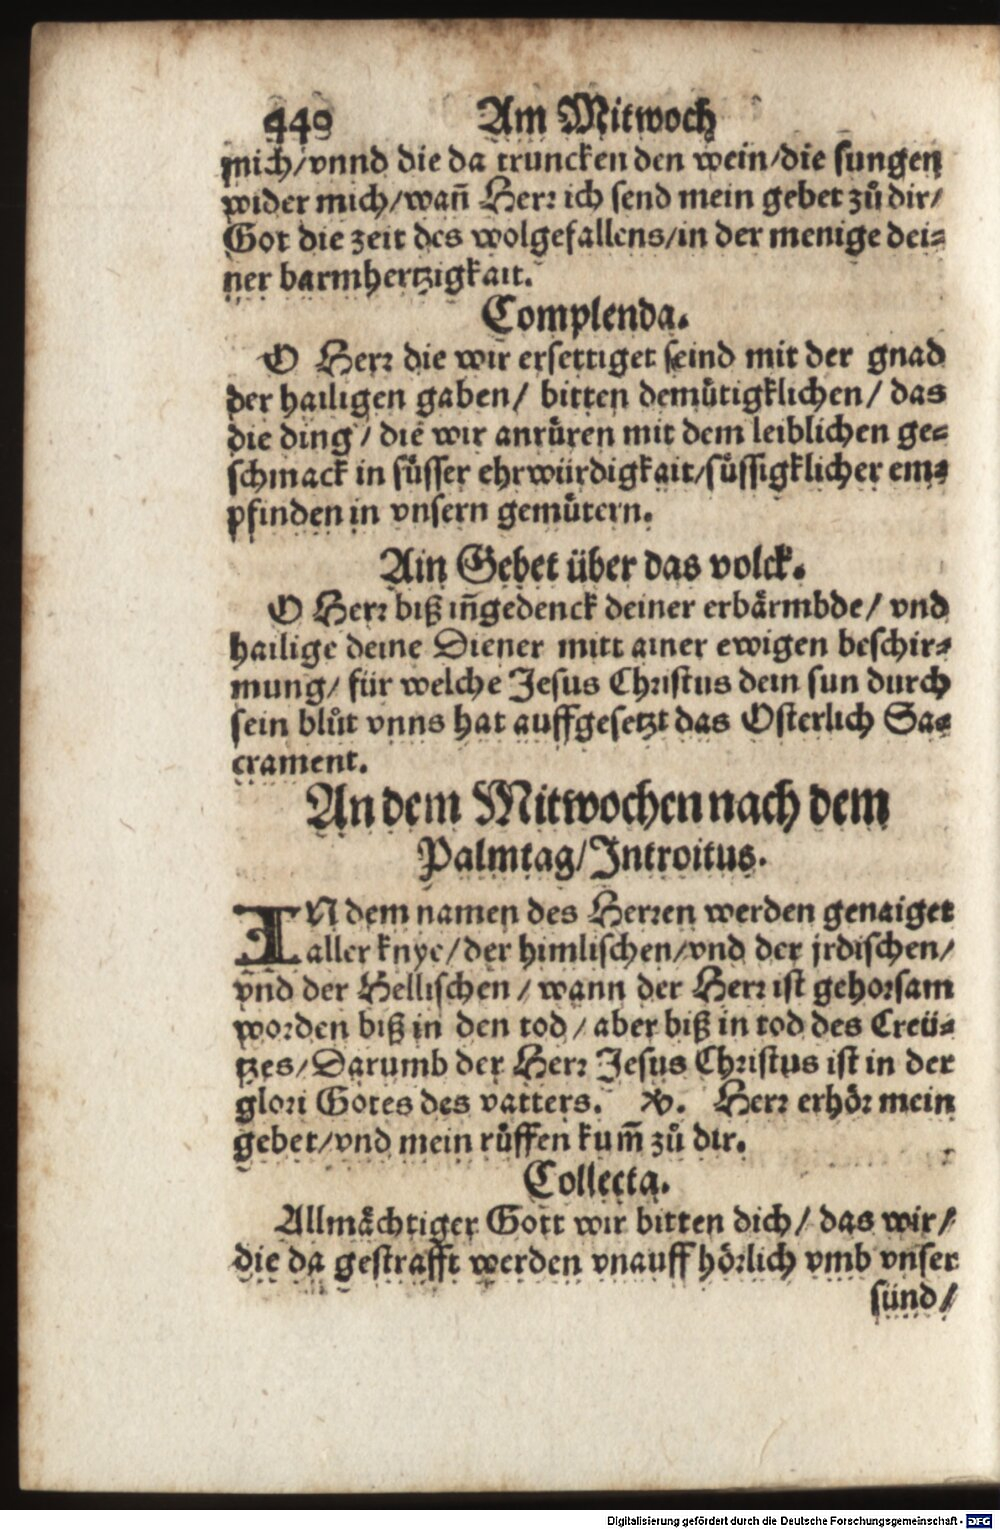 440 Am Mitwoch
mich/vnnd die da truncken den wein/die sungen
wider mich/wañ Herr ich send mein gebet zů dir/
Got die zeit des wolgefallens/in der menige dei⸗
ner barmhertzigkait.
Complenda.
O Herr die wir ersettiget seind mit der gnad
der hailigen gaben/ bitten demůtigklichen/ das
die ding/ die wir anrůren mit dem leiblichen ge⸗
schmack in sůsser ehrwürdigkait/sůssigklicher em⸗
pfinden in vnsern gemůtern.
Ain Gebet über das volck.
O Herr biß iñgedenck deiner erbärmbde/ vnd
hailige deine Diener mitt ainer ewigen beschir⸗
mung/ für welche Jesus Christus dein sun durch
sein blůt vnns hat auffgesetzt das Osterlich Sa⸗
crament.
An dem Mitwochen nach dem
Palmtag/Introitus.
IN dem namen des Herren werden genaiget
aller knye/der himlischen/vnd der jrdischen/
vnd der Hellischen/ wann der Herr ist gehorsam
worden biß in den tod/ aber biß in tod des Creü⸗
tzes/Darumb der Herr Jesus Christus ist in der
glori Gotes des vatters. ℣. Herr erhör mein
gebet/vnd mein růffen kum̃ zů dir.
Collecta.
Allmächtiger Gott wir bitten dich/ das wir/
die da gestrafft werden vnauffhörlich vmb vnser
sünd/
Digitalisierung gefördert durch die Deutsche Forschungsgemeinschaft - DFG